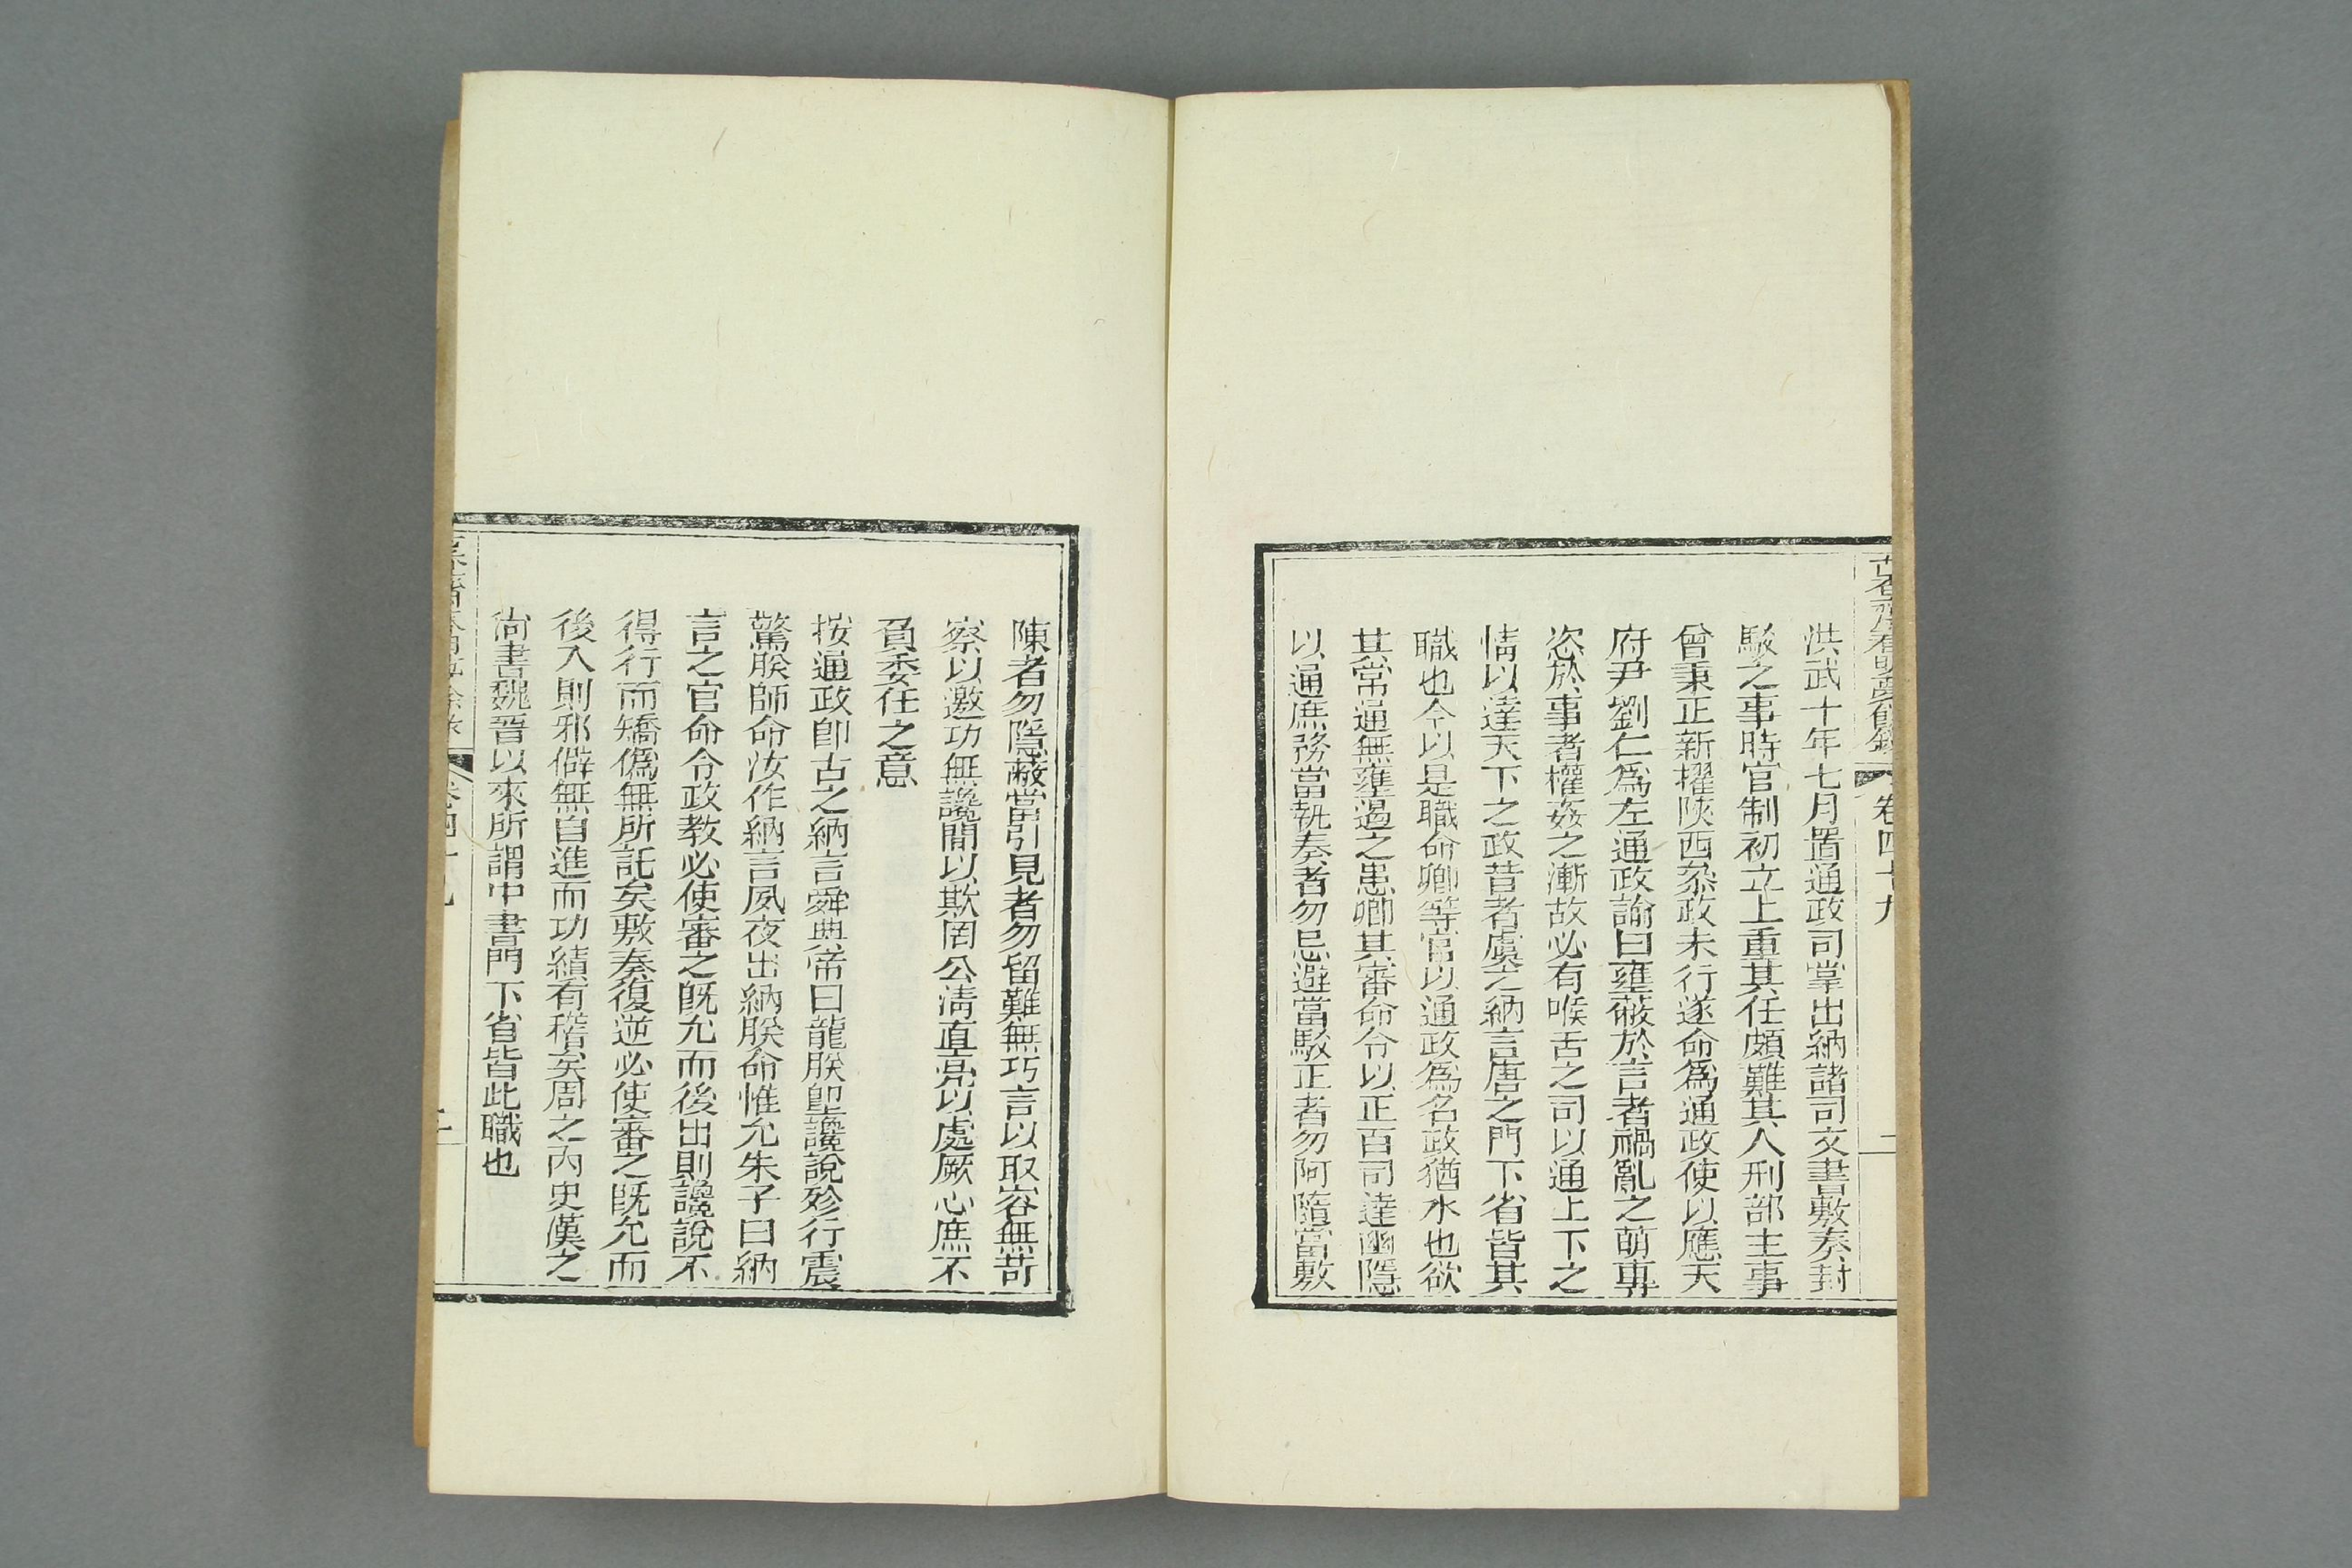 洪武十年七月置通政司掌出納諸司文書敷奏封
駁之事時官制初立上重其任頗難其人刑部主事
曾秉正新擢陝西叅政未行遂命爲通政使以應天
府尹劉仁爲左通政諭曰壅蔽於言者禍亂之萌專
恣於事者權姦之漸故必有喉舌之司以通上下之
情以達天下之政昔者虞之納言唐之門下省皆其
職也今以是職命卿等官以通政爲名政猶水也欲
其常通無壅遏之患卿其審命令以正百司達幽隱
以通庶務當執奏者勿忌避當駁正者勿阿隨當敷
古香齋春明夢餘錄 卷四十九 二
陳者勿隱蔽當引見者勿留難無巧言以取容無苛
察以邀功無讒間以欺罔公淸直亮以處厥心庶不
負委任之意
按通政卽古之納言舜典帝曰龍朕卽讒說殄行震
驚朕師命汝作納言夙夜出納朕命惟允朱子曰納
言之官命令政教必使審之旣允而後出則讒說不
得行而矯僞無所託矣敷奏復逆必使審之旣允而
後入則邪僻無自進而功績有稽矣周之內史漢之
尙書魏晉以來所謂中書門下省皆此職也